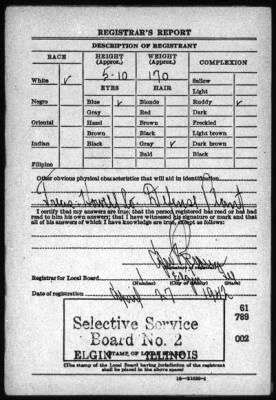 REGISTRAR'S REPORT
DESCRIPTION OF REGISTRANT
RACE HEIGHT (Approx.) WEIGHT (Approx.) COMPLEXION
White ✓ 5-10 170 Sallow
EYES HAIR Light
Negro Blue ✓ Blonde Ruddy ✓
Gray Red Dark
Oriental Hazel Brown Freckled
Brown Black Light brown
Indian Black Gray ✓ Dark brown
Bald Black
Filipino
Other obvious physical characteristics that will aid in identification
Co. Defense Plant
I certify that my answers are true; that the person registered has read or has had
read to him his own answers; that I have witnessed his signature or mark and that
all of his answers of which I have knowledge are true, except as follows:
(Signature of registrar)
Registrar for Local Board Elgin Ill
(Number) (City or county) (State)
Date of registration April 27 1942
61
789
002
Selective Service
Board No. 2
ELGIN ILLINOIS
(STAMP OF LOCAL BOARD)
(The stamp of the Local Board having jurisdiction of the registrant
shall be placed in the above space)